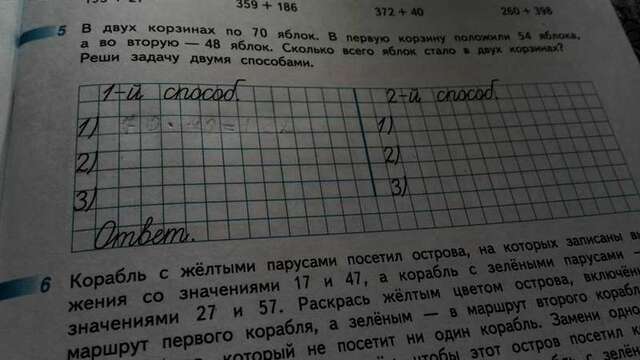 359 + 186
372 + 40
260 + 398
5 В двух корзинах по 70 яблок. В первую корзину положили 54 яблока,
а во вторую — 48 яблок. Сколько всего яблок стало в двух корзинах?
Реши задачу двумя способами.
1-й способ. 2-й способ.
1) 1)
2) 2)
3) 3)
Ответ.
6 Корабль с жёлтыми парусами посетил острова, на которых записаны
жения со значениями 17 и 47, а корабль с зелёными парусами —
значениями 27 и 57. Раскрась жёлтым цветом острова, включён
маршрут первого корабля, а зелёным — в маршрут второго корабл
который не посетит ни один корабль. Замени одно
чтобы этот остров посетил к